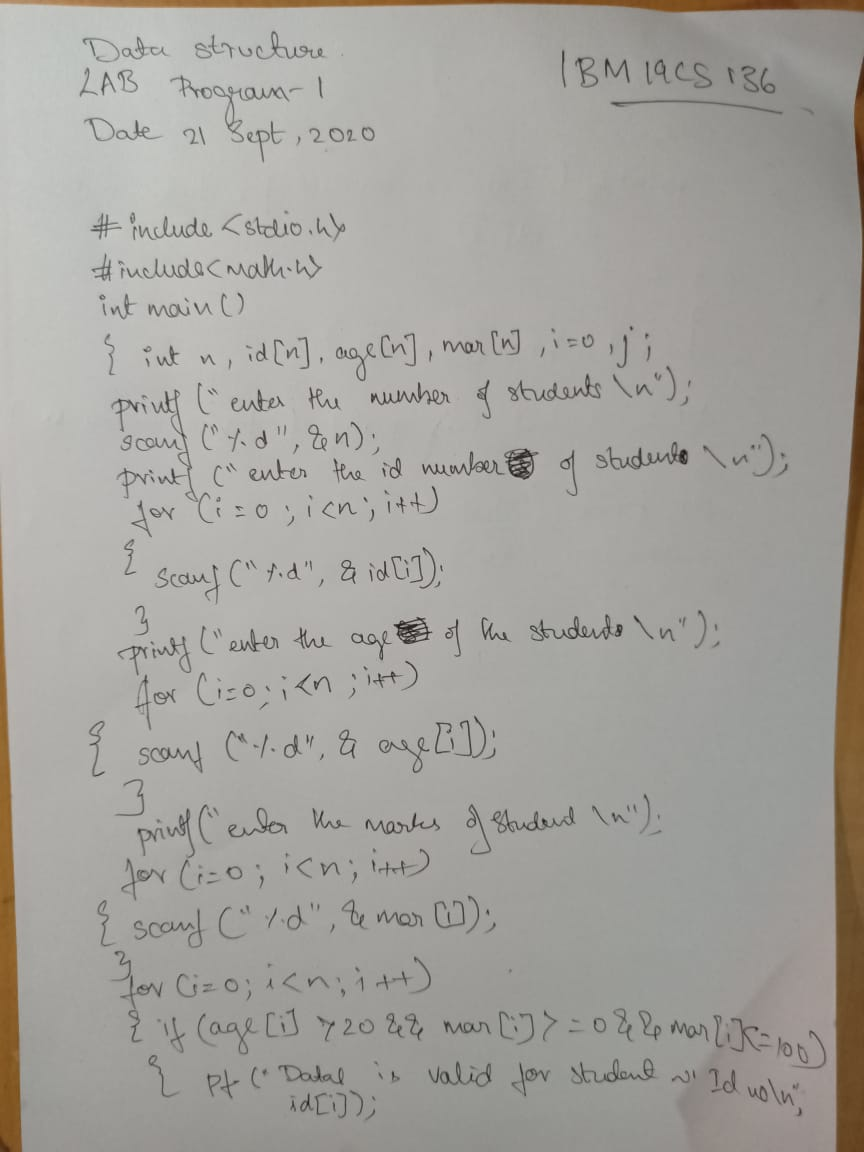 Data structure
1BM19CS136
LAB Program-1
Date 21 Sept, 2020
#include <stdio.h>
#include<math.h>
int main()
{ int n, id[n], age[n], mar[n], i=0, j;
printf ("enter the number of students \n");
scanf ("%d", &n);
printf ("enter the id number of students \n");
for (i=0; i<n; i++)
{
scanf ("%d", &id[i]);
}
printf ("enter the age of the students \n");
for (i=0; i<n; i++)
{ scanf ("%d", & age[i]);
}
printf ("enter the marks of student \n");
for (i=0; i<n; i++)
{ scanf ("%d", & mar[i]);
}
for (i=0; i<n; i++)
{ if (age[i] >20 && mar[i]>=0 && mar[i]<=100)
{ Pf ("Data is valid for student Id no\n",
id[i]);